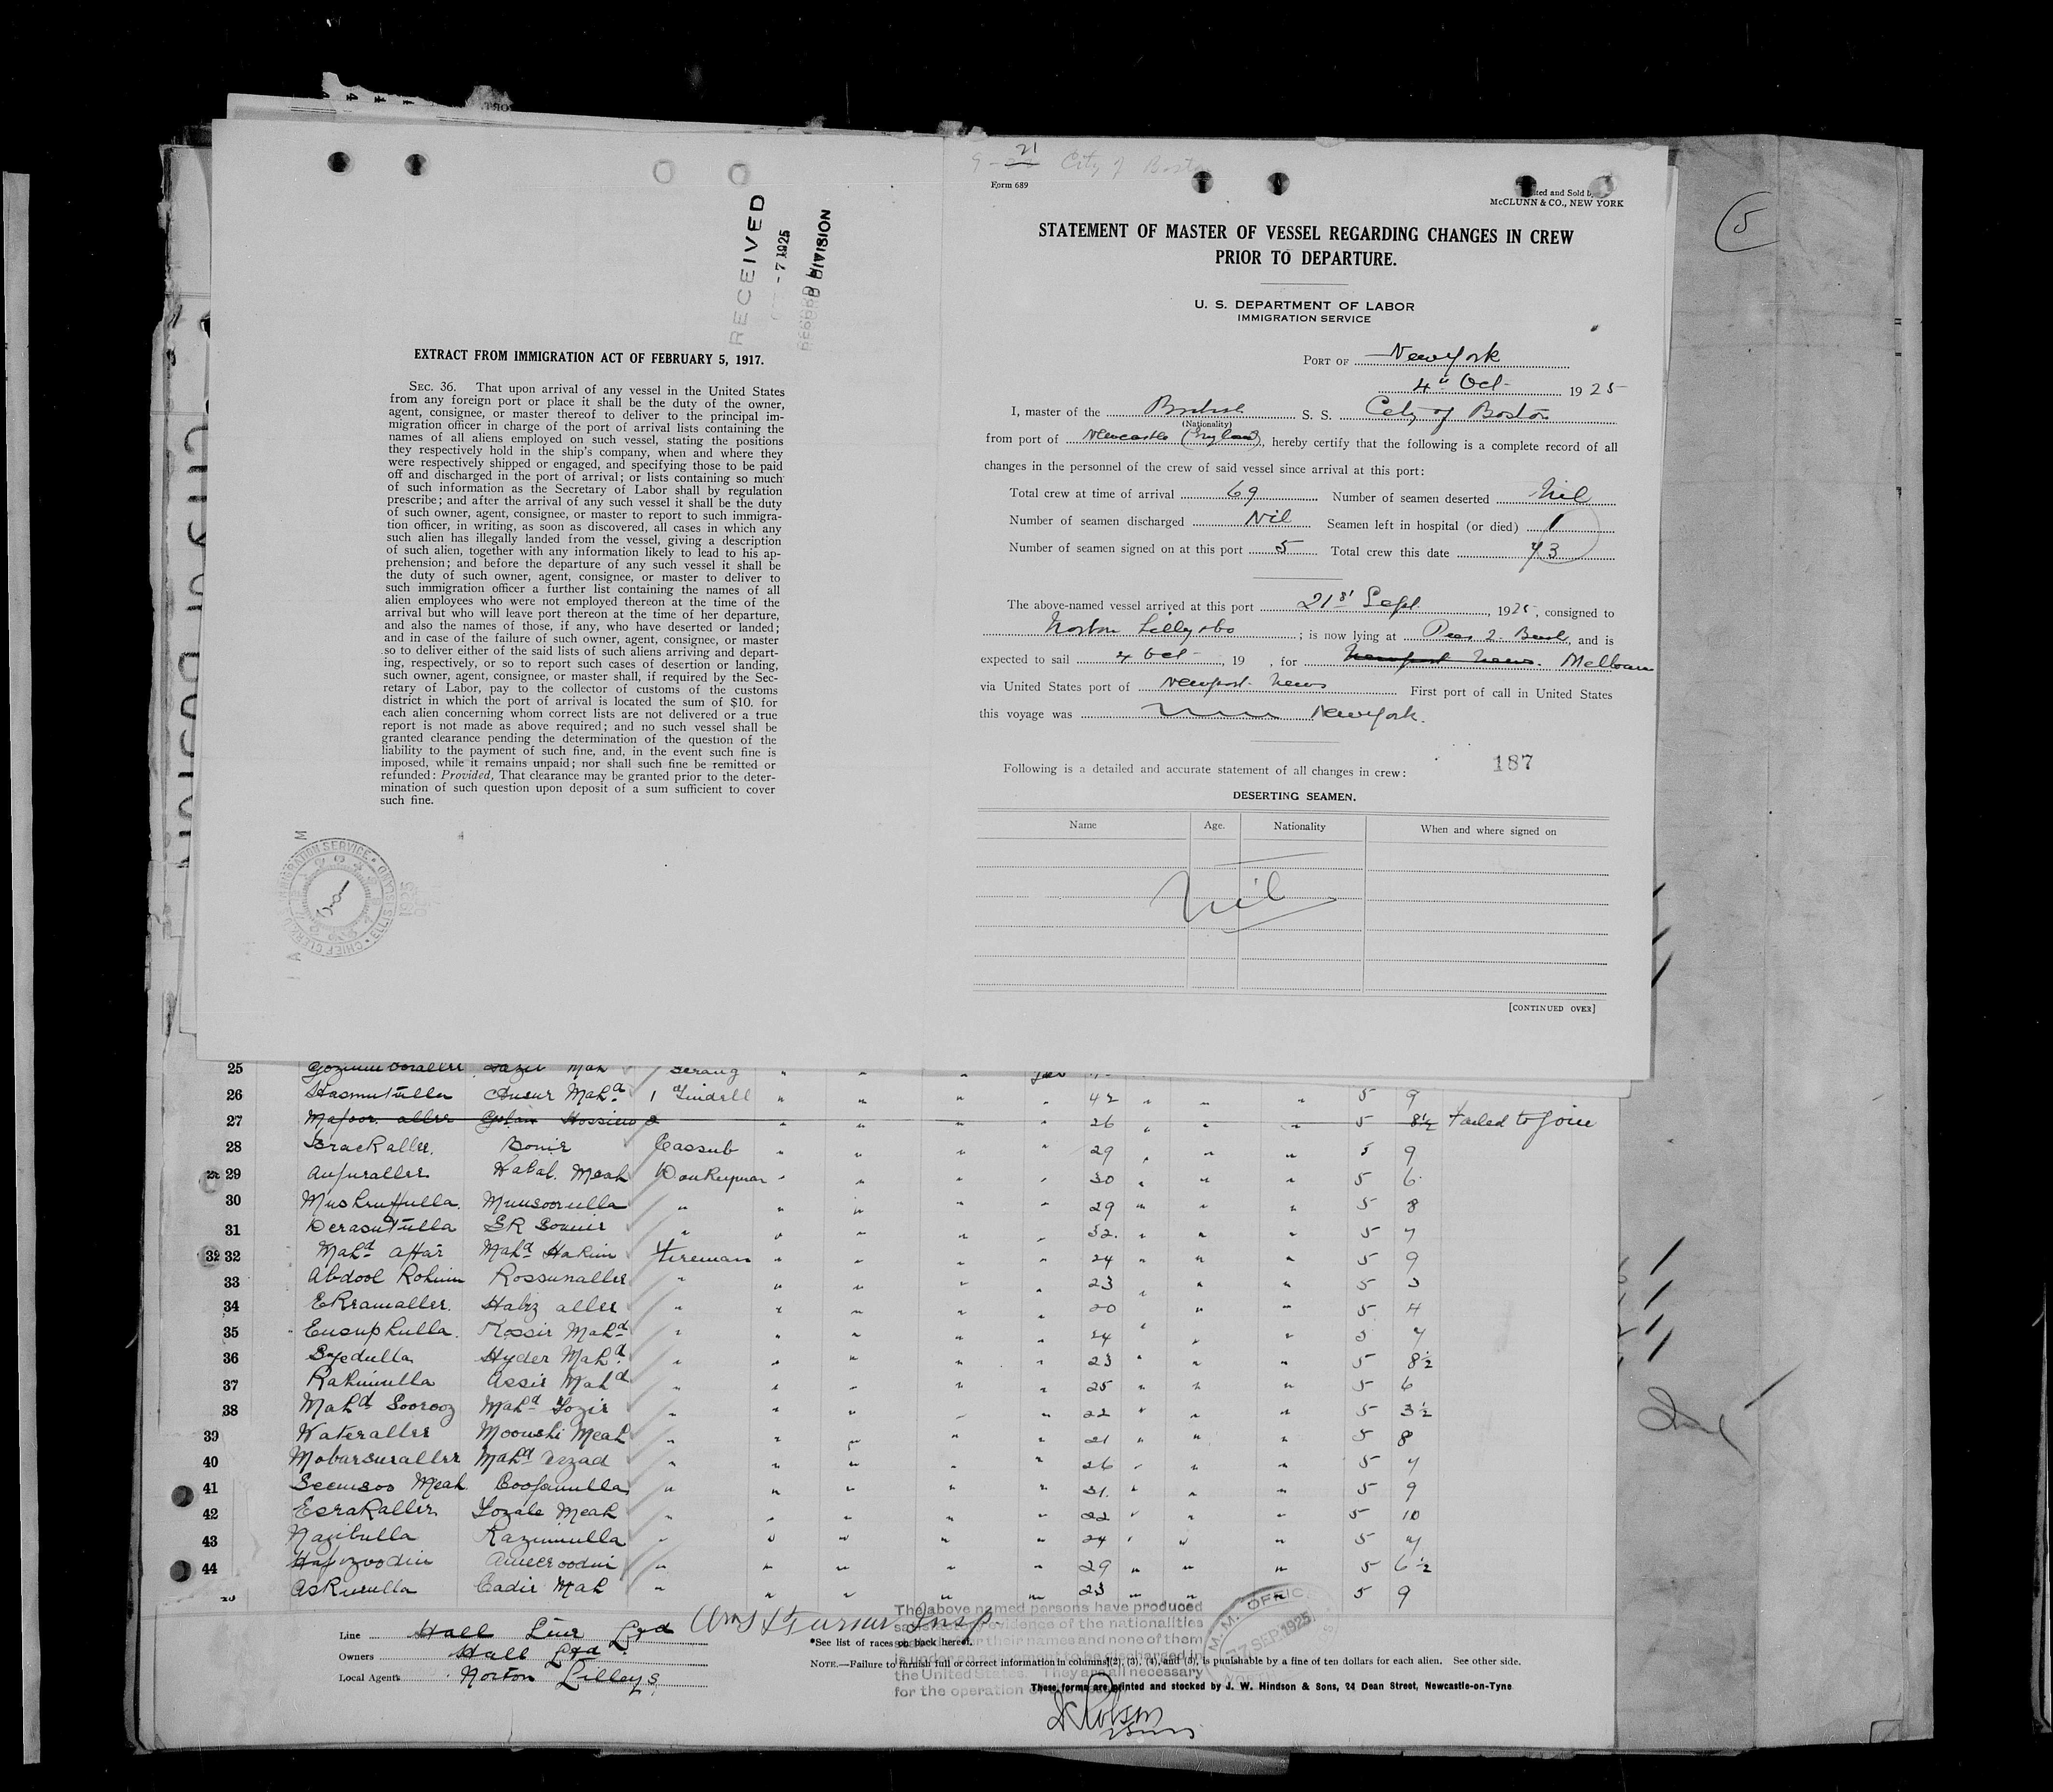 RECEIVED
- 7 1925
DIVISION
EXTRACT FROM IMMIGRATION ACT OF FEBRUARY 5, 1917.
SEC. 36. That upon arrival of any vessel in the United States
from any foreign port or place it shall be the duty of the owner,
agent, consignee, or master thereof to deliver to the principal im-
migration officer in charge of the port of arrival lists containing the
names of all aliens employed on such vessel, stating the positions
they respectively hold in the ship's company, when and where they
were respectively shipped or engaged, and specifying those to be paid
off and discharged in the port of arrival; or lists containing so much
of such information as the Secretary of Labor shall by regulation
prescribe; and after the arrival of any such vessel it shall be the duty
of such owner, agent, consignee, or master to report to such immigra-
tion officer, in writing, as soon as discovered, all cases in which any
such alien has illegally landed from the vessel, giving a description
of such alien, together with any information likely to lead to his ap-
prehension; and before the departure of any such vessel it shall be
the duty of such owner, agent, consignee, or master to deliver to
such immigration officer a further list containing the names of all
alien employees who were not employed thereon at the time of the
arrival but who will leave port thereon at the time of her departure,
and also the names of those, if any, who have deserted or landed;
and in case of the failure of such owner, agent, consignee, or master
so to deliver either of the said lists of such aliens arriving and depart-
ing, respectively, or so to report such cases of desertion or landing,
such owner, agent, consignee, or master shall, if required by the Sec-
retary of Labor, pay to the collector of customs of the customs
district in which the port of arrival is located the sum of $10. for
each alien concerning whom correct lists are not delivered or a true
report is not made as above required; and no such vessel shall be
granted clearance pending the determination of the question of the
liability to the payment of such fine, and, in the event such fine is
imposed, while it remains unpaid; nor shall such fine be remitted or
refunded: Provided, That clearance may be granted prior to the deter-
mination of such question upon deposit of a sum sufficient to cover
such fine.
21
City of Boston
Form 689
and Sold by
McCLUNN & CO., NEW YORK
5
STATEMENT OF MASTER OF VESSEL REGARDING CHANGES IN CREW
PRIOR TO DEPARTURE.
U. S. DEPARTMENT OF LABOR
IMMIGRATION SERVICE
PORT OF New York
4" Oct 1925
I, master of the British S. S. City of Boston
(Nationality)
from port of Newcastle (England), hereby certify that the following is a complete record of all
changes in the personnel of the crew of said vessel since arrival at this port:
Total crew at time of arrival 69 Number of seamen deserted Nil
Number of seamen discharged Nil Seamen left in hospital (or died) 1
Number of seamen signed on at this port 5 Total crew this date 73
The above-named vessel arrived at this port 21st Sept. , 1925, consigned to
Norton Lilly & Co ; is now lying at Pier 2. Bush, and is
expected to sail 4 Oct , 19 , for Newport News. Melbourne
via United States port of Newport News First port of call in United States
this voyage was New York.
Following is a detailed and accurate statement of all changes in crew: 187
DESERTING SEAMEN.
Name Age. Nationality When and where signed on
Nil
[CONTINUED OVER]
25 Serang
26 Hasmutulla Ansur Mahd 1 " Tindell " " " " 42 " " " 5 9
27 Golam Hossien 2 " " " 26 " " " 5 8½ Failed to join
28 Israckaller. Bonir Cassub " " " " 29 " " " 5 9
29 Habal. Meah Donkeyman " " " " 30 " " " 5 6
30 Munsoorulla " " " " " 29 " " " 5 8
31 Derasutulla SR Somir " " " " " 32. " " " 5 7
32 32 Mahd affar Mahd Hakim Fireman " " " " 24 " " " 5 9
33 Abdool Rohim Rossunaller " " " " " 23 " " " 5 3
34 Ekramaller. Habz aller " " " " " 20 " " 5 4
35 Eusuphulla. Kossir Mahd " " " " " 24 " " " 5 7
36 Syedulla Hyder Mahd " " " " " 23 " " " 5 8½
37 Rahimulla Assir Mahd " " " " " 25 " " " 5 6
38 Mahd Soorooz Mahd Gozir " " " " " 22 " " " 5 3½
39 Wateraller Moonshi Meah " " " " " 21 " " " 5 8
40 Mobarsuraller Mahd Arzad " " " " " 26 " " " 5 7
41 Meah " " " " " 31. " " " 5 9
42 Esrakaller Meah " " " " " 22 " " " 5 10
43 Nazibulla Kazimulla " " " " " 24 " " " 5 7
44 Hafizoodin Ameeroodin " " " " " 29 " " " 5 6½
Askurulla Cadir Mah " " " " " 23 " " " 5 9
Line Hall Line Ltd
Owners Hall Ltd
Local Agents Norton Lilleys
The above named persons have produced
satisfactory evidence of the nationalities
their names and none of them
the United States. They are all necessary
for the operation of
M. M. OFFICE
7 SEP. 1925
*See list of races on back hereof.
NOTE.—Failure to furnish full or correct information in columns (2), (3), (4), and (5), is punishable by a fine of ten dollars for each alien. See other side.
These forms are printed and stocked by J. W. Hindson & Sons, 24 Dean Street, Newcastle-on-Tyne